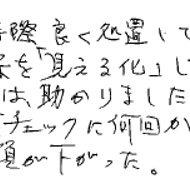 際良く処置して
を「見える化」し
は、助かりました
チェックに何回か
頭が下がった。